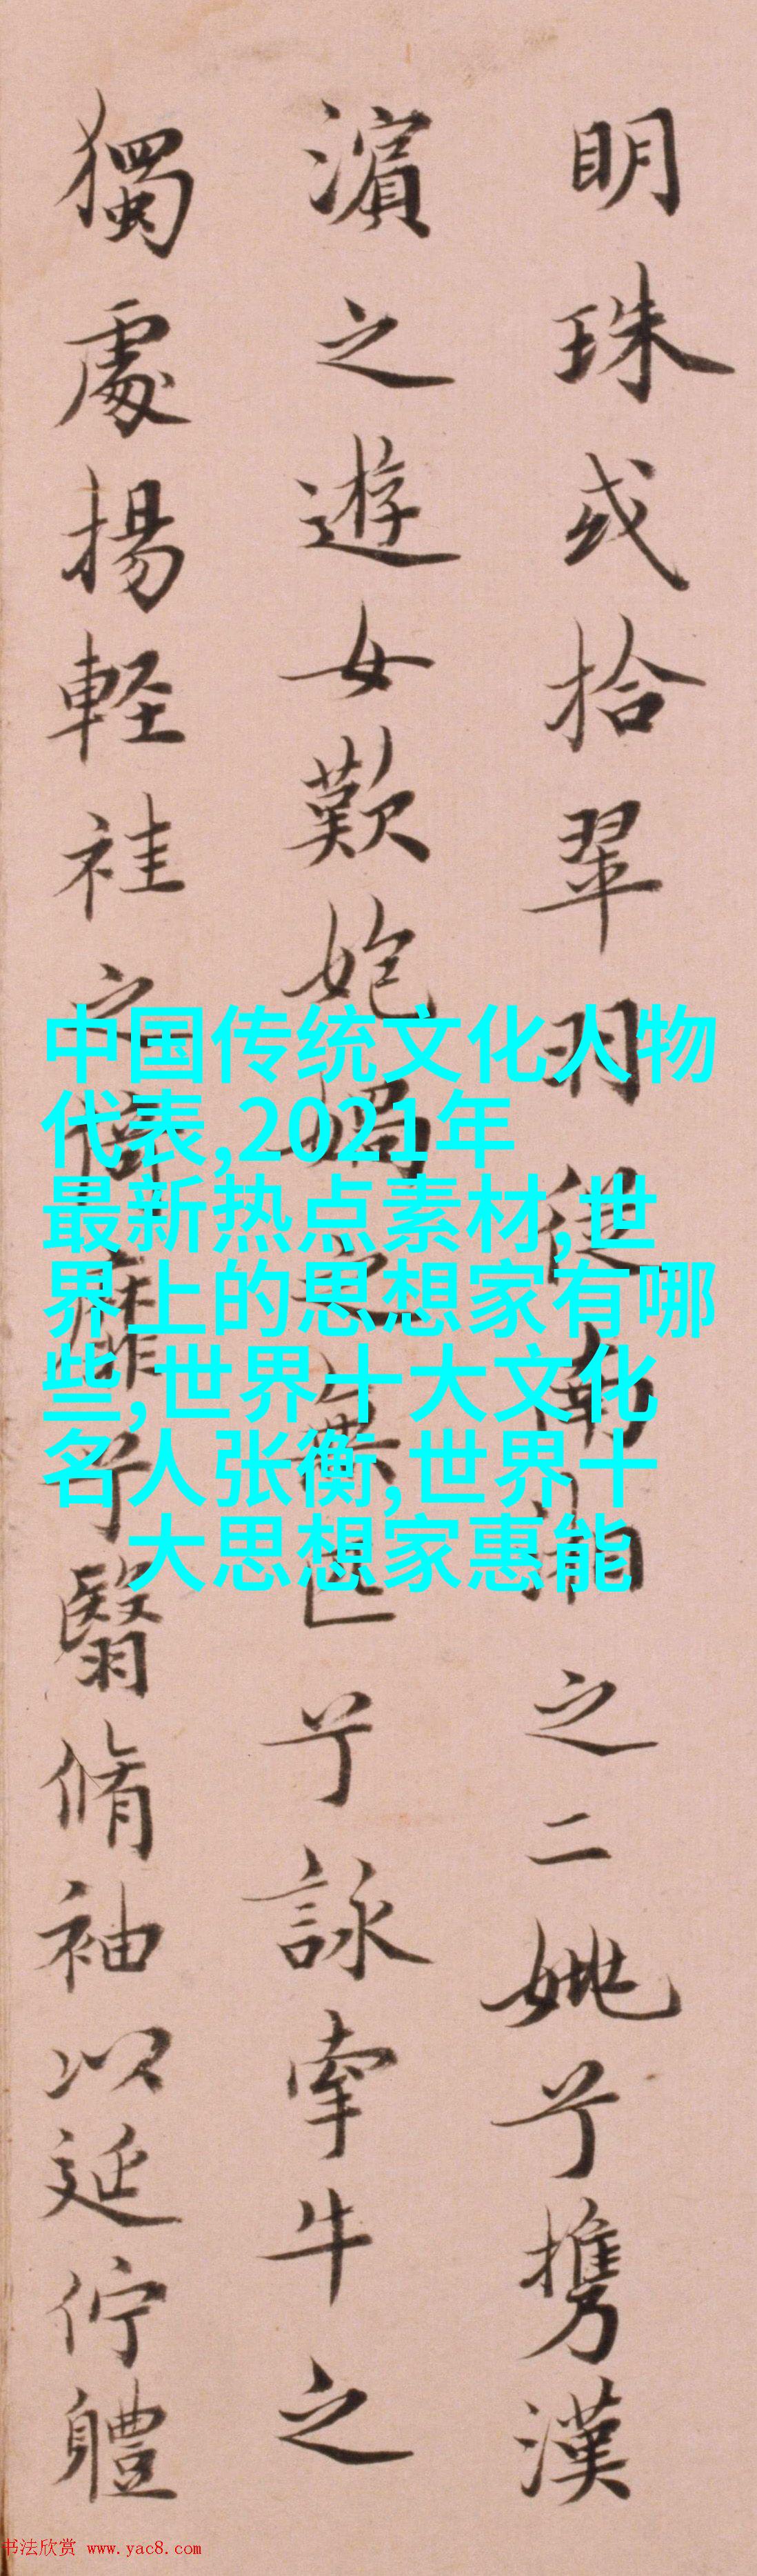 明珠或拾翠羽從南湘之二姚兮攜漢
濱之遊女歎匏媧之無匹兮詠牽牛之
獨處揚輕袿之倚靡兮翳脩袖以延佇體
中国传统文化人物
代表,2021年
最新热点素材,世
界上的思想家有哪
些,世界十大文化
名人张衡,世界十
大思想家惠能
书法欣赏 www.yac8.com